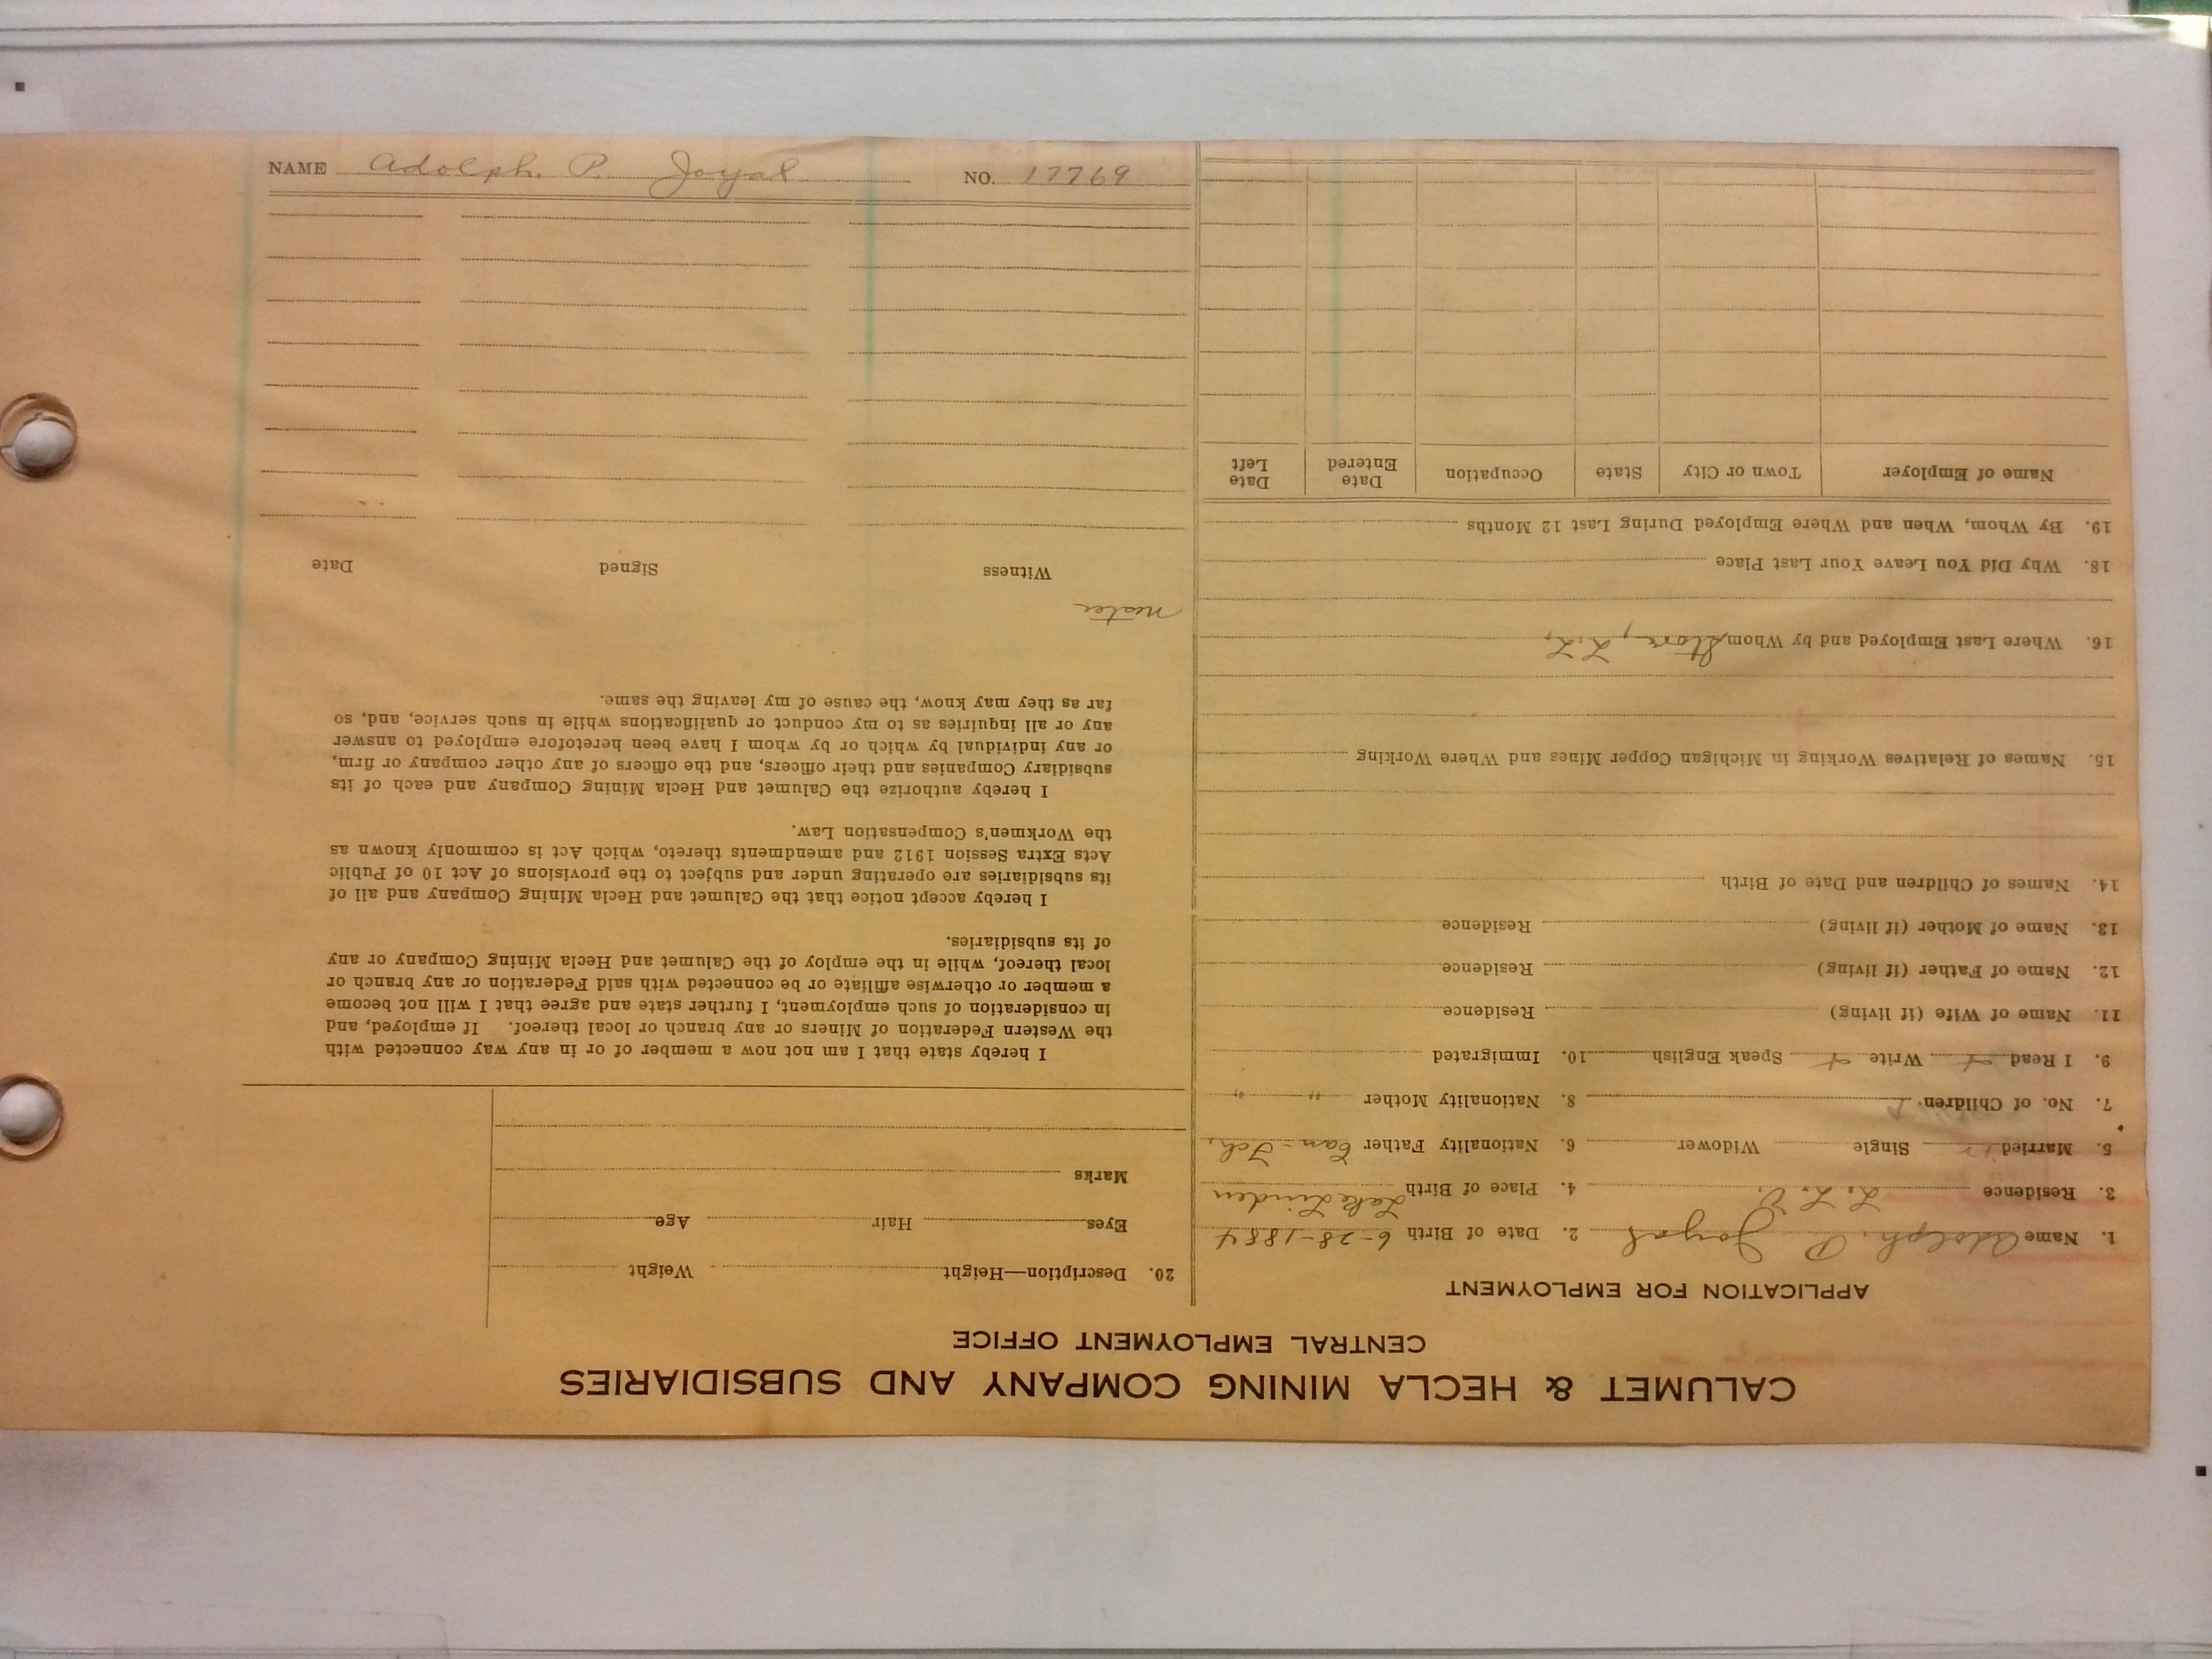 CALUMET & HECLA MINING COMPANY AND SUBSIDIARIES
CENTRAL EMPLOYMENT OFFICE
APPLICATION FOR EMPLOYMENT
1. Name Adolph. P. Joyal 2. Date of Birth 6-28-1884
3. Residence L. L. 4. Place of Birth Lake Linden
5. Married Single Widower 6. Nationality Father Can-Fch.
7. No. of Children 8. Nationality Mother " "
9. I Read Write Speak English 10. Immigrated
11. Name of Wife (if living) Residence
12. Name of Father (if living) Residence
13. Name of Mother (if living) Residence
14. Names of Children and Date of Birth
15. Names of Relatives Working in Michigan Copper Mines and Where Working
16. Where Last Employed and by Whom Store, L.L.
18. Why Did You Leave Your Last Place
19. By Whom, When and Where Employed During Last 12 Months
Name of Employer Town or City State Occupation Date Entered Date Left
20. Description—Height Weight
Eyes Hair Age
Marks
I hereby state that I am not now a member of or in any way connected with
the Western Federation of Miners or any branch or local thereof. If employed, and
in consideration of such employment, I further state and agree that I will not become
a member or otherwise affiliate or be connected with said Federation or any branch or
local thereof, while in the employ of the Calumet and Hecla Mining Company or any
of its subsidiaries.
I hereby accept notice that the Calumet and Hecla Mining Company and all of
its subsidiaries are operating under and subject to the provisions of Act 10 of Public
Acts Extra Session 1912 and amendments thereto, which Act is commonly known as
the Workmen's Compensation Law.
I hereby authorize the Calumet and Hecla Mining Company and each of its
subsidiary Companies and their officers, and the officers of any other company or firm,
or any individual by which or by whom I have been heretofore employed to answer
any or all inquiries as to my conduct or qualifications while in such service, and, so
far as they may know, the cause of my leaving the same.
Witness Signed Date
NAME Adolph. P. Joyal NO. 17769